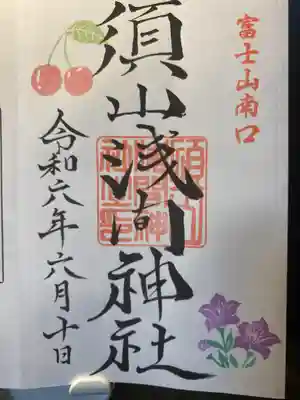 富士山南口
須山浅间神社
令和六年六月十日